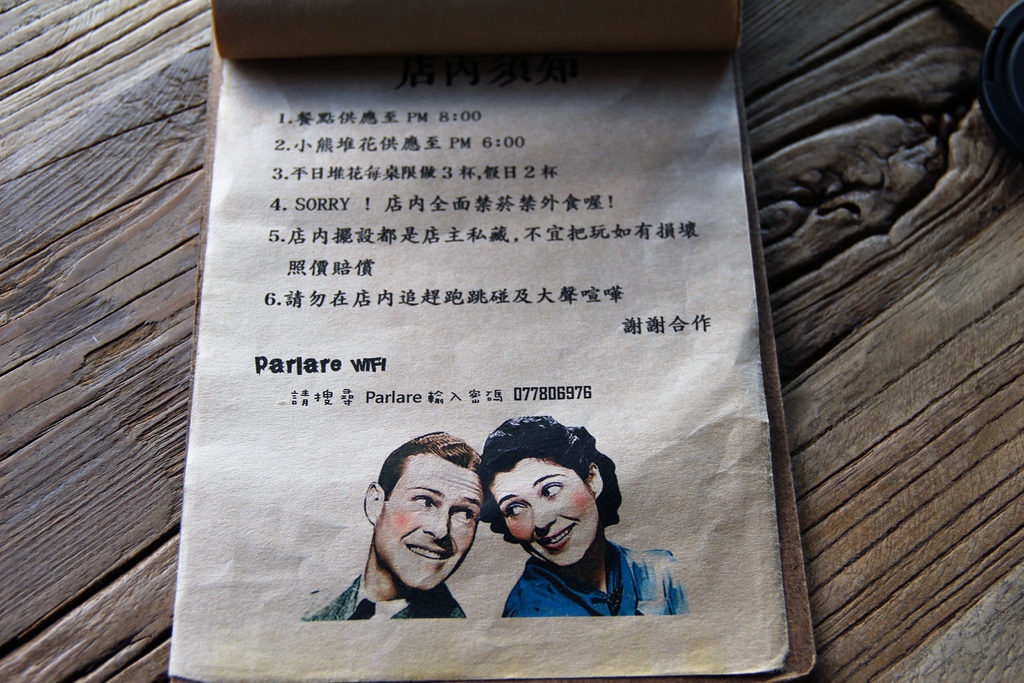 店內須知
1.餐點供應至 PM 8:00
2.小熊堆花供應至 PM 6:00
3.平日堆花每桌限做 3 杯,假日 2 杯
4. SORRY ! 店內全面禁菸禁外食喔!
5.店內擺設都是店主私藏,不宜把玩如有損壞
照價賠償
6.請勿在店內追趕跑跳碰及大聲喧嘩
謝謝合作
Parlare WIFI
請搜尋 Parlare 輸入密碼 077806976